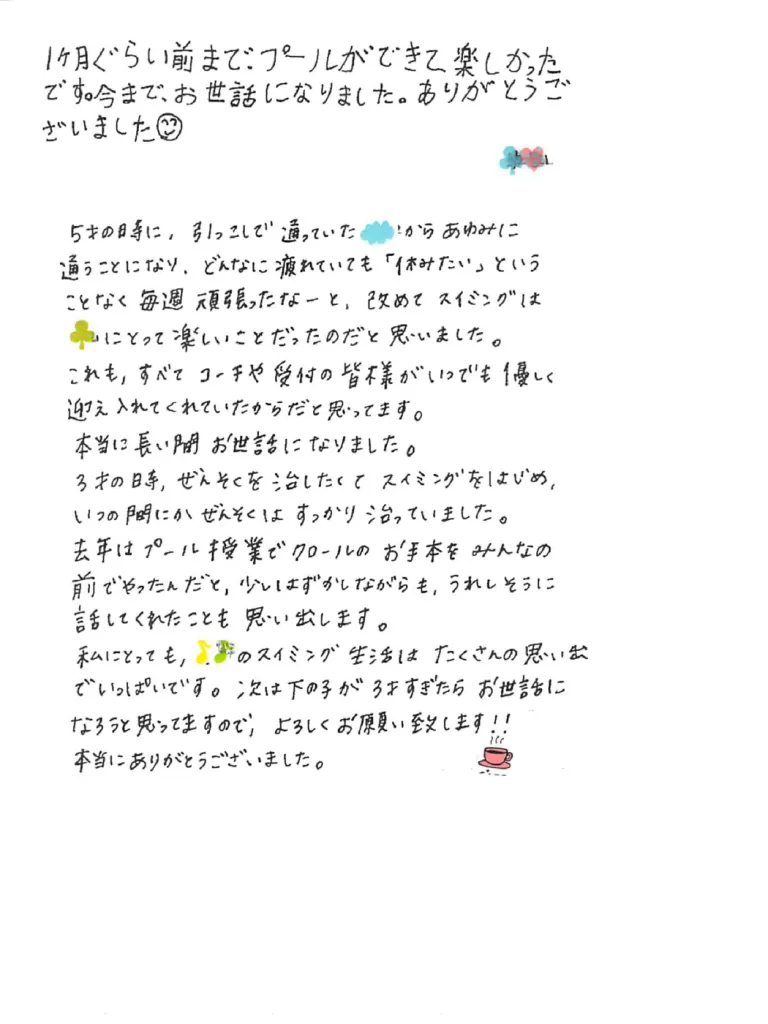 1ヶ月ぐらい前まで、プールができて楽しかった
です。今まで、お世話になりました。ありがとうご
ざいました
5才の時に、引っこしで通っていた からあゆみに
通うことになり、どんなに疲れていても「休みたい」という
ことなく毎週頑張ったなーと、改めてスイミングは
にとって楽しいことだったのだと思いました。
これも、すべてコーチや受付の皆様がいつでも優しく
迎え入れてくれていたからだと思ってます。
本当に長い間お世話になりました。
3才の時、ぜんそくを治したくてスイミングをはじめ、
いつの間にかぜんそくはすっかり治っていました。
去年はプール授業でクロールのお手本をみんなの
前でやったんだと、少しはずかしながらも、うれしそうに
話してくれたことも思い出します。
私にとっても、 のスイミング生活はたくさんの思い出
でいっぱいです。次は下の子が3才すぎたらお世話に
なろうと思ってますので、よろしくお願い致します!!
本当にありがとうございました。